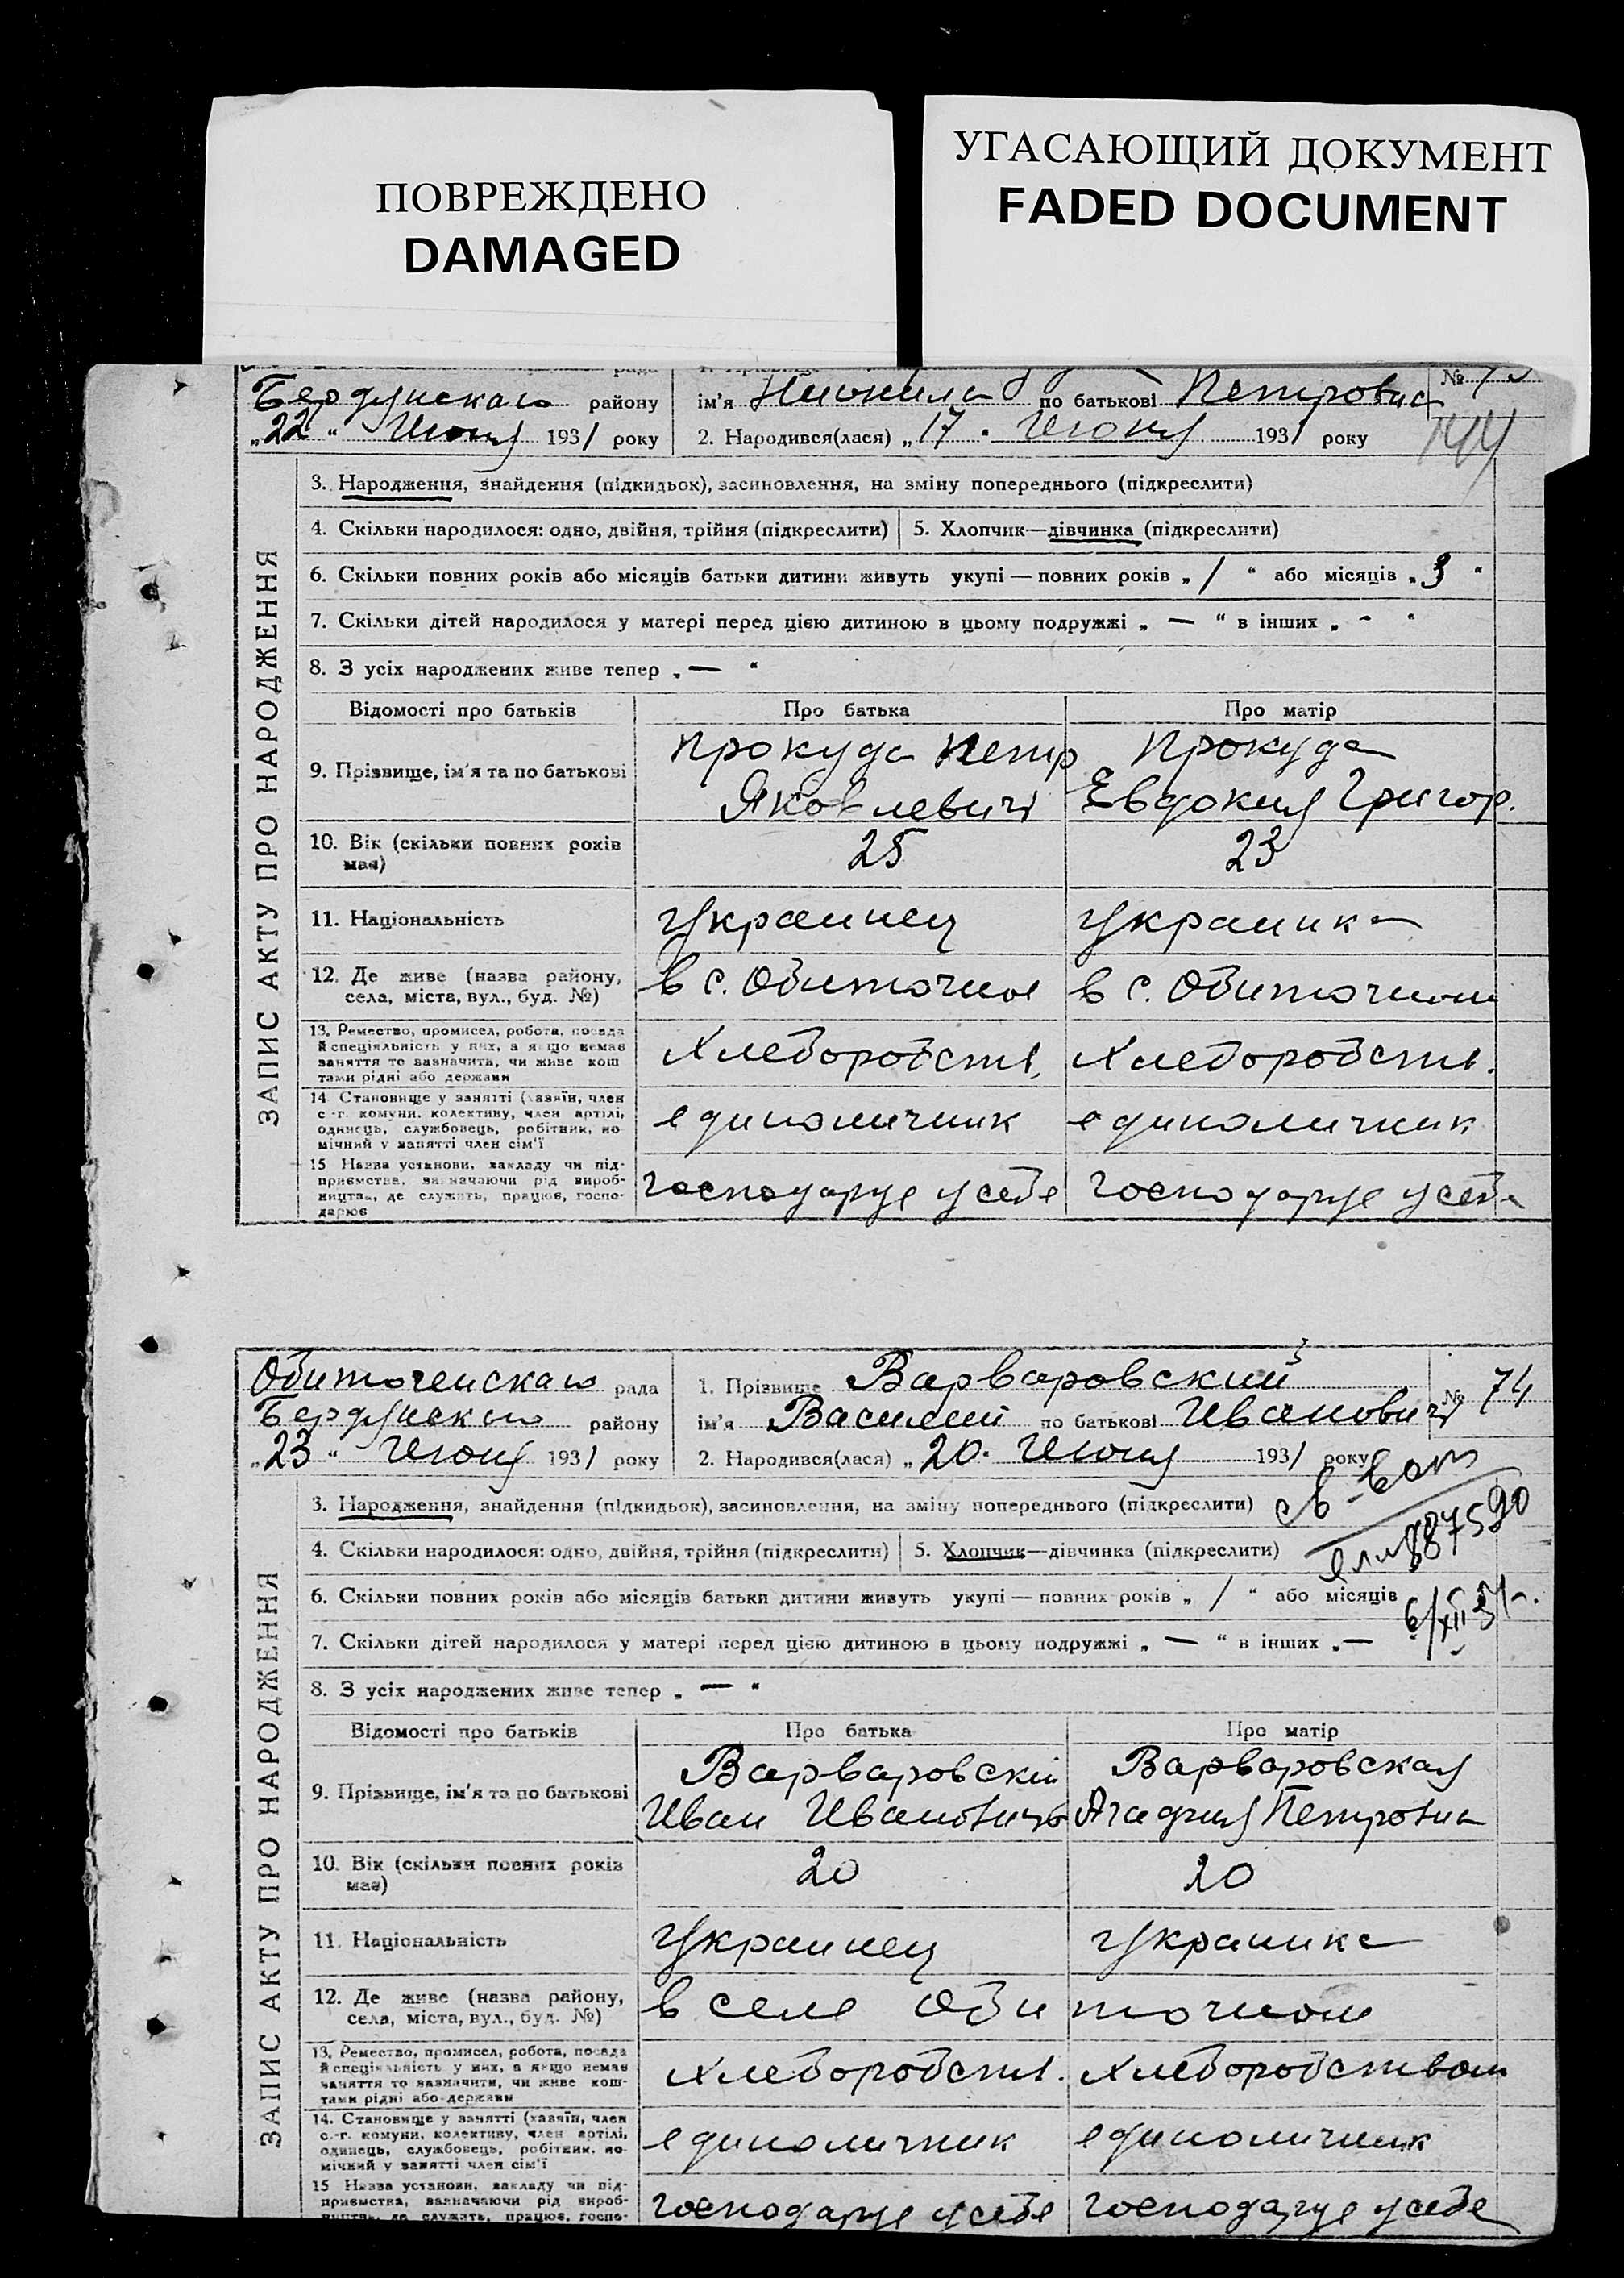 ПОВРЕЖДЕНО
DAMAGED
УГАСАЮЩИЙ ДОКУМЕНТ
FADED DOCUMENT
Бердянскаго району
ім'я по батькові Петровна №
„22“ Июня 1931 року
2. Народився(лася) „17. Июня 1931 року
ЗАПИС АКТУ ПРО НАРОДЖЕННЯ
3. Народження, знайдення (підкидьок), засиновлення, на зміну попереднього (підкреслити)
4. Скільки народилося: одно, двійня, трійня (підкреслити)
5. Хлопчик—дівчинка (підкреслити)
6. Скільки повних років або місяців батьки дитини живуть укупі — повних років „ 1 “ або місяців „ 3 “
7. Скільки дітей народилося у матері перед цією дитиною в цьому подружжі „ — “ в інших „ - “
8. З усіх народжених живе тепер „ — “
Відомості про батьків Про батька Про матір
9. Прізвище, ім'я та по батькові
Прокуда Петр
Яковлевич
Прокуда
Евдокия Григор.
10. Вік (скільки повних років
має)
25 23
11. Національність
Украинец Украинка
12. Де живе (назва району,
села, міста, вул., буд. №)
в с. Обиточном в с. Обиточном
13. Ремество, промисел, робота, посада
й спеціяльність у них, а якщо немає
заняття то вазначити, чи живе кош
тами рідні або держави
Хлеборобств. Хлеборобств.
14. Становище у занятті (хазяїн, член
с.-г. комуни, колективу, член артілі,
одинець, службовець, робітник, по-
мічний у занятті член сім'ї
единоличник единоличник
15 Назва установи, закладу чи під-
приємства, зазначаючи рід вироб-
ництва, де служить, працює, госпо-
дарює
Господарує у себе Господарує у себе
Обиточенскаго рада
Бердянскаго району
„23“ Июня 1931 року
1. Прізвище Варваровский
ім'я Василий по батькові Иванович
№ 74
2. Народився(лася) „20. Июня 1931 року
ЗАПИС АКТУ ПРО НАРОДЖЕННЯ
3. Народження, знайдення (підкидьок), засиновлення, на зміну попереднього (підкреслити)
4. Скільки народилося: одно, двійня, трійня (підкреслити)
5. Хлопчик—дівчинка (підкреслити)
6. Скільки повних років або місяців батьки дитини живуть укупі — повних років „ 1 “ або місяців
7. Скільки дітей народилося у матері перед цією дитиною в цьому подружжі „ — “ в інших „ —
8. З усіх народжених живе тепер „ — “
Відомості про батьків Про батька Про матір
9. Прізвище, ім'я та по батькові
Варваровскій
Иван Ивановичъ
Варваровская
Агафия Петровна
10. Вік (скільки повних років
має)
20 20
11. Національність
Украинец Украинка
12. Де живе (назва району,
села, міста, вул., буд. №)
в селе Обиточном
13. Ремество, промисел, робота, посада
й спеціяльність у них, а якщо немає
заняття то вазначити, чи живе кош-
тами рідні або держави
Хлеборобств. Хлеборобством
14. Становище у занятті (хазяїн, член
с.-г. комуни, колективу, член артілі,
одинець, службовець, робітник, по-
мічний у занятті член сім'ї
единоличник единоличник
15 Назва установи, закладу чи під-
приємства, вазначаючи рід вироб-
ництва, де служить, працює, госпо-
Господарує у себе Господарує у себе